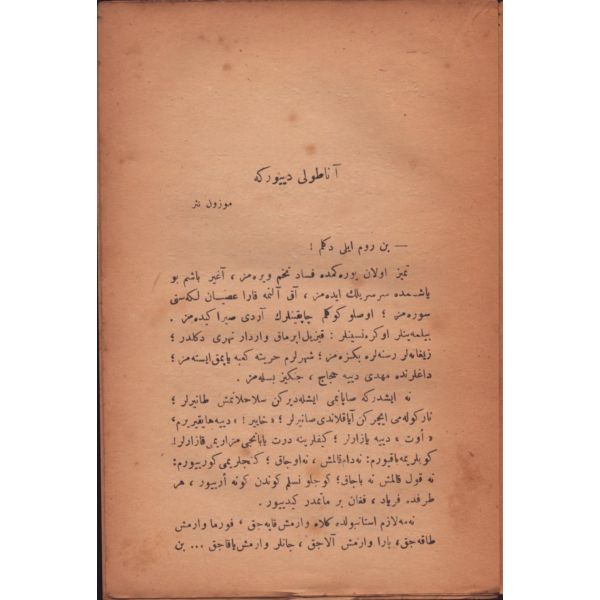 آناطولی دییورکه
موزون نثر
— بن روم ایلی دکلم !
تمیز اولان یوره‌کمده فساد تخم ویره‌مز ، آغیر باشم بو
یاشمده سرسریلك ایده‌مز ، آق آلنمه قارا عصیان لکه‌سنی
سوره‌مز ؛ اوصلو کوکلم چاپقینلرك آردی صیرا کیده‌مز .
بیلمه‌ینلر اوکره‌نسینلر : قیزیل ایرماق واردار نهری دکلدر ؛
زیغانه‌لر رسنه‌لره بکزه‌مز ؛ شهرلرم حربته کعبه یاپمق ایسته‌مز ؛
داغلرنده مهدی دییه حجاج ، جنکیز بسله‌مز .
نه ایشدرکه صاپانمی ایشله‌دیرکن سلاحلانمش طانیرلر ؛
نارکوله‌می ایچرکن آیاقلاندی صانیرلر ؛ « خایر ! » دییه هایقیریرم ،
« أوت ، دییه یازارلر ؛ کیفلرینه درت یابانجی مزاریمی قازارلر !
کویلریمه باقیورم : نه دام قالمش ، نه اوجاق ؛ کنجلریمی کورییورم :
نه قول قالمش نه باجاق ؛ کوجلو نسلم کوندن کونه أرییور ، هر
طرفده فریاد ، فغان بر ماتمدر کیدییور .
نه‌مه لازم استانبولده کلاه وارمش قاپه‌جق ، فورما وارمش
طاقه‌جق ، پارا وارمش آلاجق ، جانلر وارمش یاقاجق ... بن